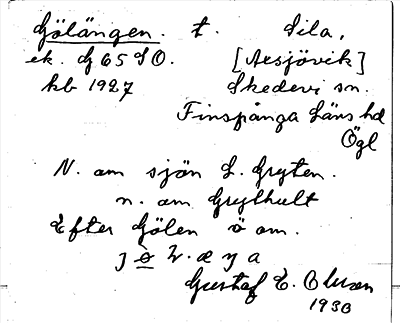 Gölängen. t. Sila,
ek. G 65 SO. [Aksjövik]
hb 1927 Skedevi sn.
Finspånga Läns hd
Ögl
N. om sjön L. Gryten.
n. om Grythult
Efter Gölen ö om.
Gustaf E. Olsson
1930